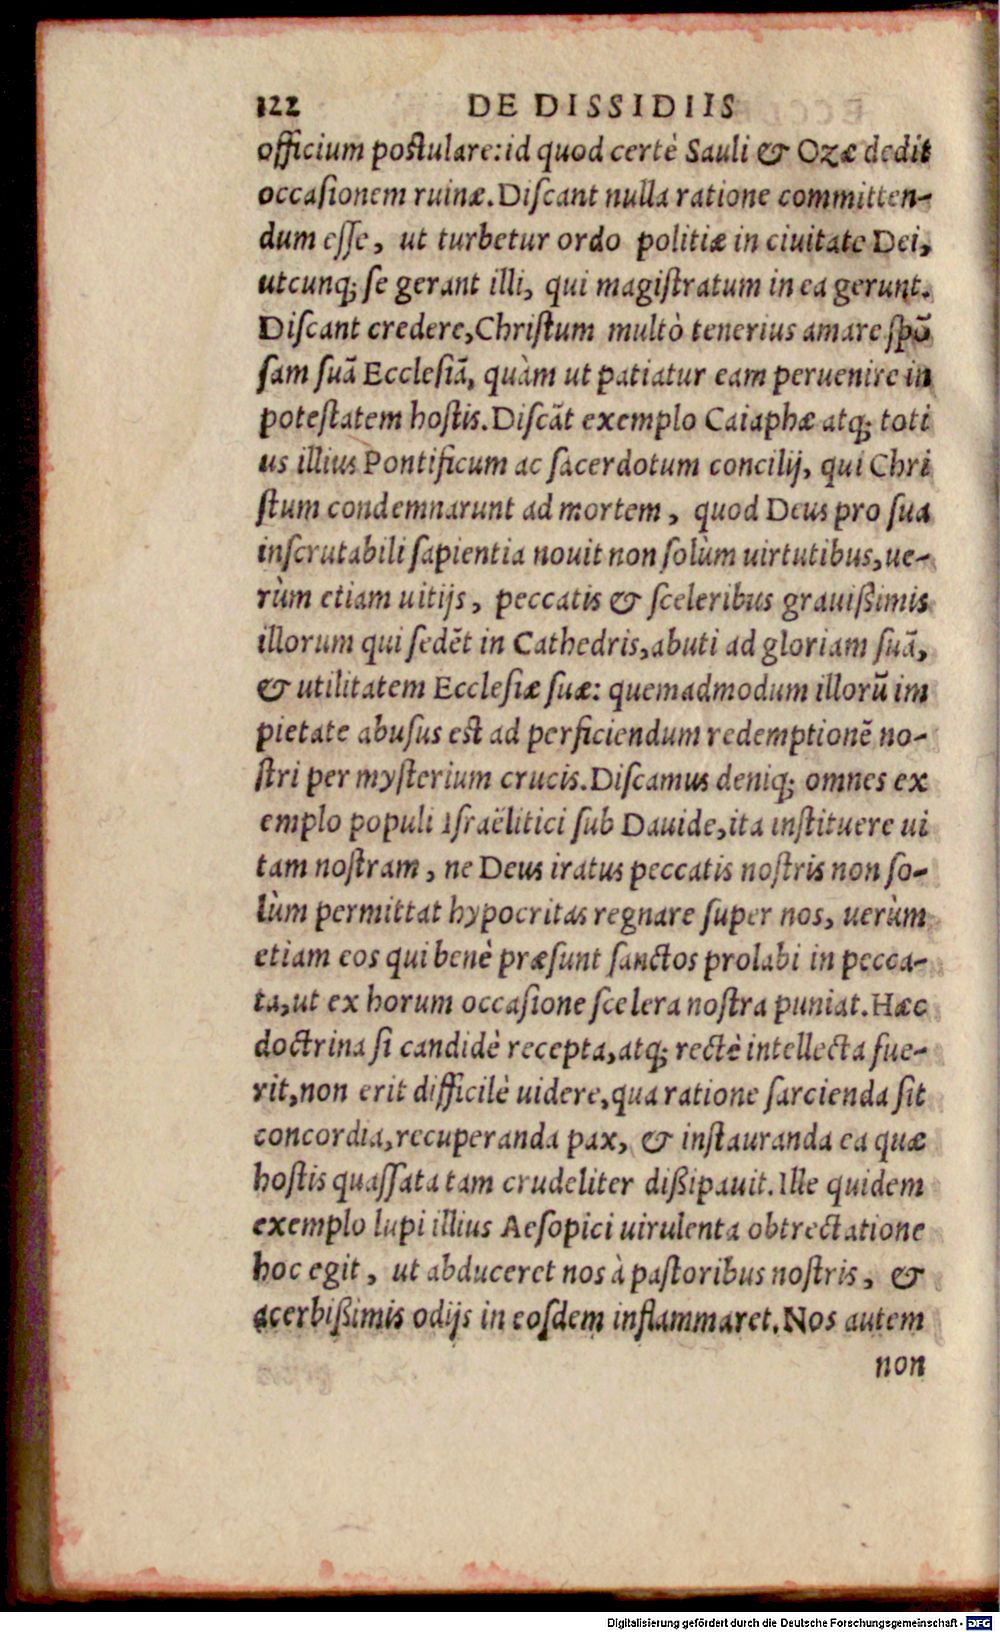 122 DE DISSIDIIS
officium postulare: id quod certè Sauli & Ozæ dedit
occasionem ruinæ. Discant nulla ratione committen-
dum esse, ut turbetur ordo politiæ in ciuitate Dei,
utcunq; se gerant illi, qui magistratum in ea gerunt.
Discant credere, Christum multò tenerius amare spõ
sam suã Ecclesiã, quàm ut patiatur eam peruenire in
potestatem hostis. Discãt exemplo Caiaphæ atq; toti
us illius Pontificum ac sacerdotum concilij, qui Chri
stum condemnarunt ad mortem, quod Deus pro sua
inscrutabili sapientia nouit non solùm uirtutibus, ue-
rùm etiam uitijs, peccatis & sceleribus grauißimis
illorum qui sedẽt in Cathedris, abuti ad gloriam suã,
& utilitatem Ecclesiæ suæ: quemadmodum illorũ im
pietate abusus est ad perficiendum redemptionẽ no-
stri per mysterium crucis. Discamus deniq; omnes ex
emplo populi Israëlitici sub Dauide, ita instituere ui
tam nostram, ne Deus iratus peccatis nostris non so-
lùm permittat hypocritas regnare super nos, uerùm
etiam eos qui benè præsunt sanctos prolabi in pecca-
ta, ut ex horum occasione scelera nostra puniat. Hæc
doctrina si candidè recepta, atq; rectè intellecta fue-
rit, non erit difficilè uidere, qua ratione sarcienda sit
concordia, recuperanda pax, & instauranda ea quæ
hostis quassata tam crudeliter dißipauit. Ille quidem
exemplo lupi illius Aesopici uirulenta obtrectatione
hoc egit, ut abduceret nos à pastoribus nostris, &
acerbißimis odijs in eosdem inflammaret. Nos autem
non
Digitalisierung gefördert durch die Deutsche Forschungsgemeinschaft - DFG